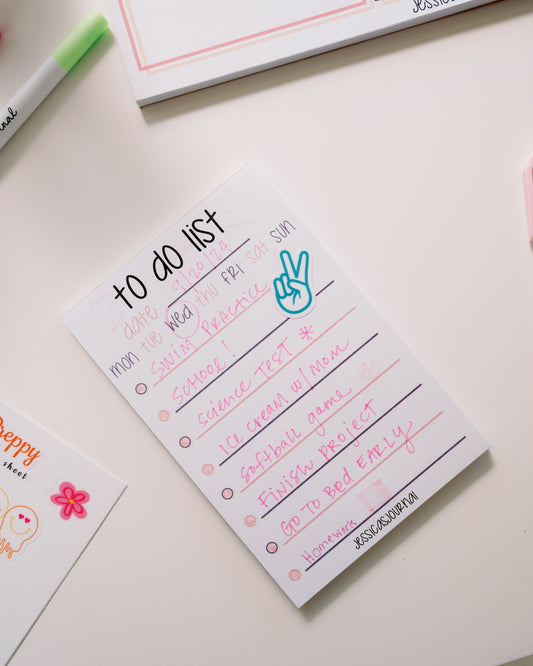 to do list
date 9/20/24
mon tue wed thu fri sat sun
Swim Practice
School!
Science Test *
Ice cream w/ Mom
Softball game
Finish Project
Go to Bed Early
Homework
jessicasjournal
Preppy
sheet